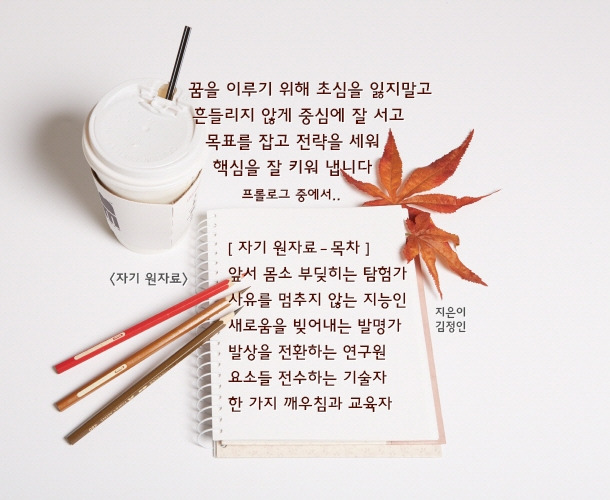 꿈을 이루기 위해 초심을 잃지말고
흔들리지 않게 중심에 잘 서고
목표를 잡고 전략을 세워
핵심을 잘 키워 냅니다
프롤로그 중에서..
[ 자기 원자료 - 목차 ]
앞서 몸소 부딪히는 탐험가
<자기 원자료>
사유를 멈추지 않는 지능인
지은이
김정인
새로움을 빚어내는 발명가
발상을 전환하는 연구원
요소들 전수하는 기술자
한 가지 깨우침과 교육자